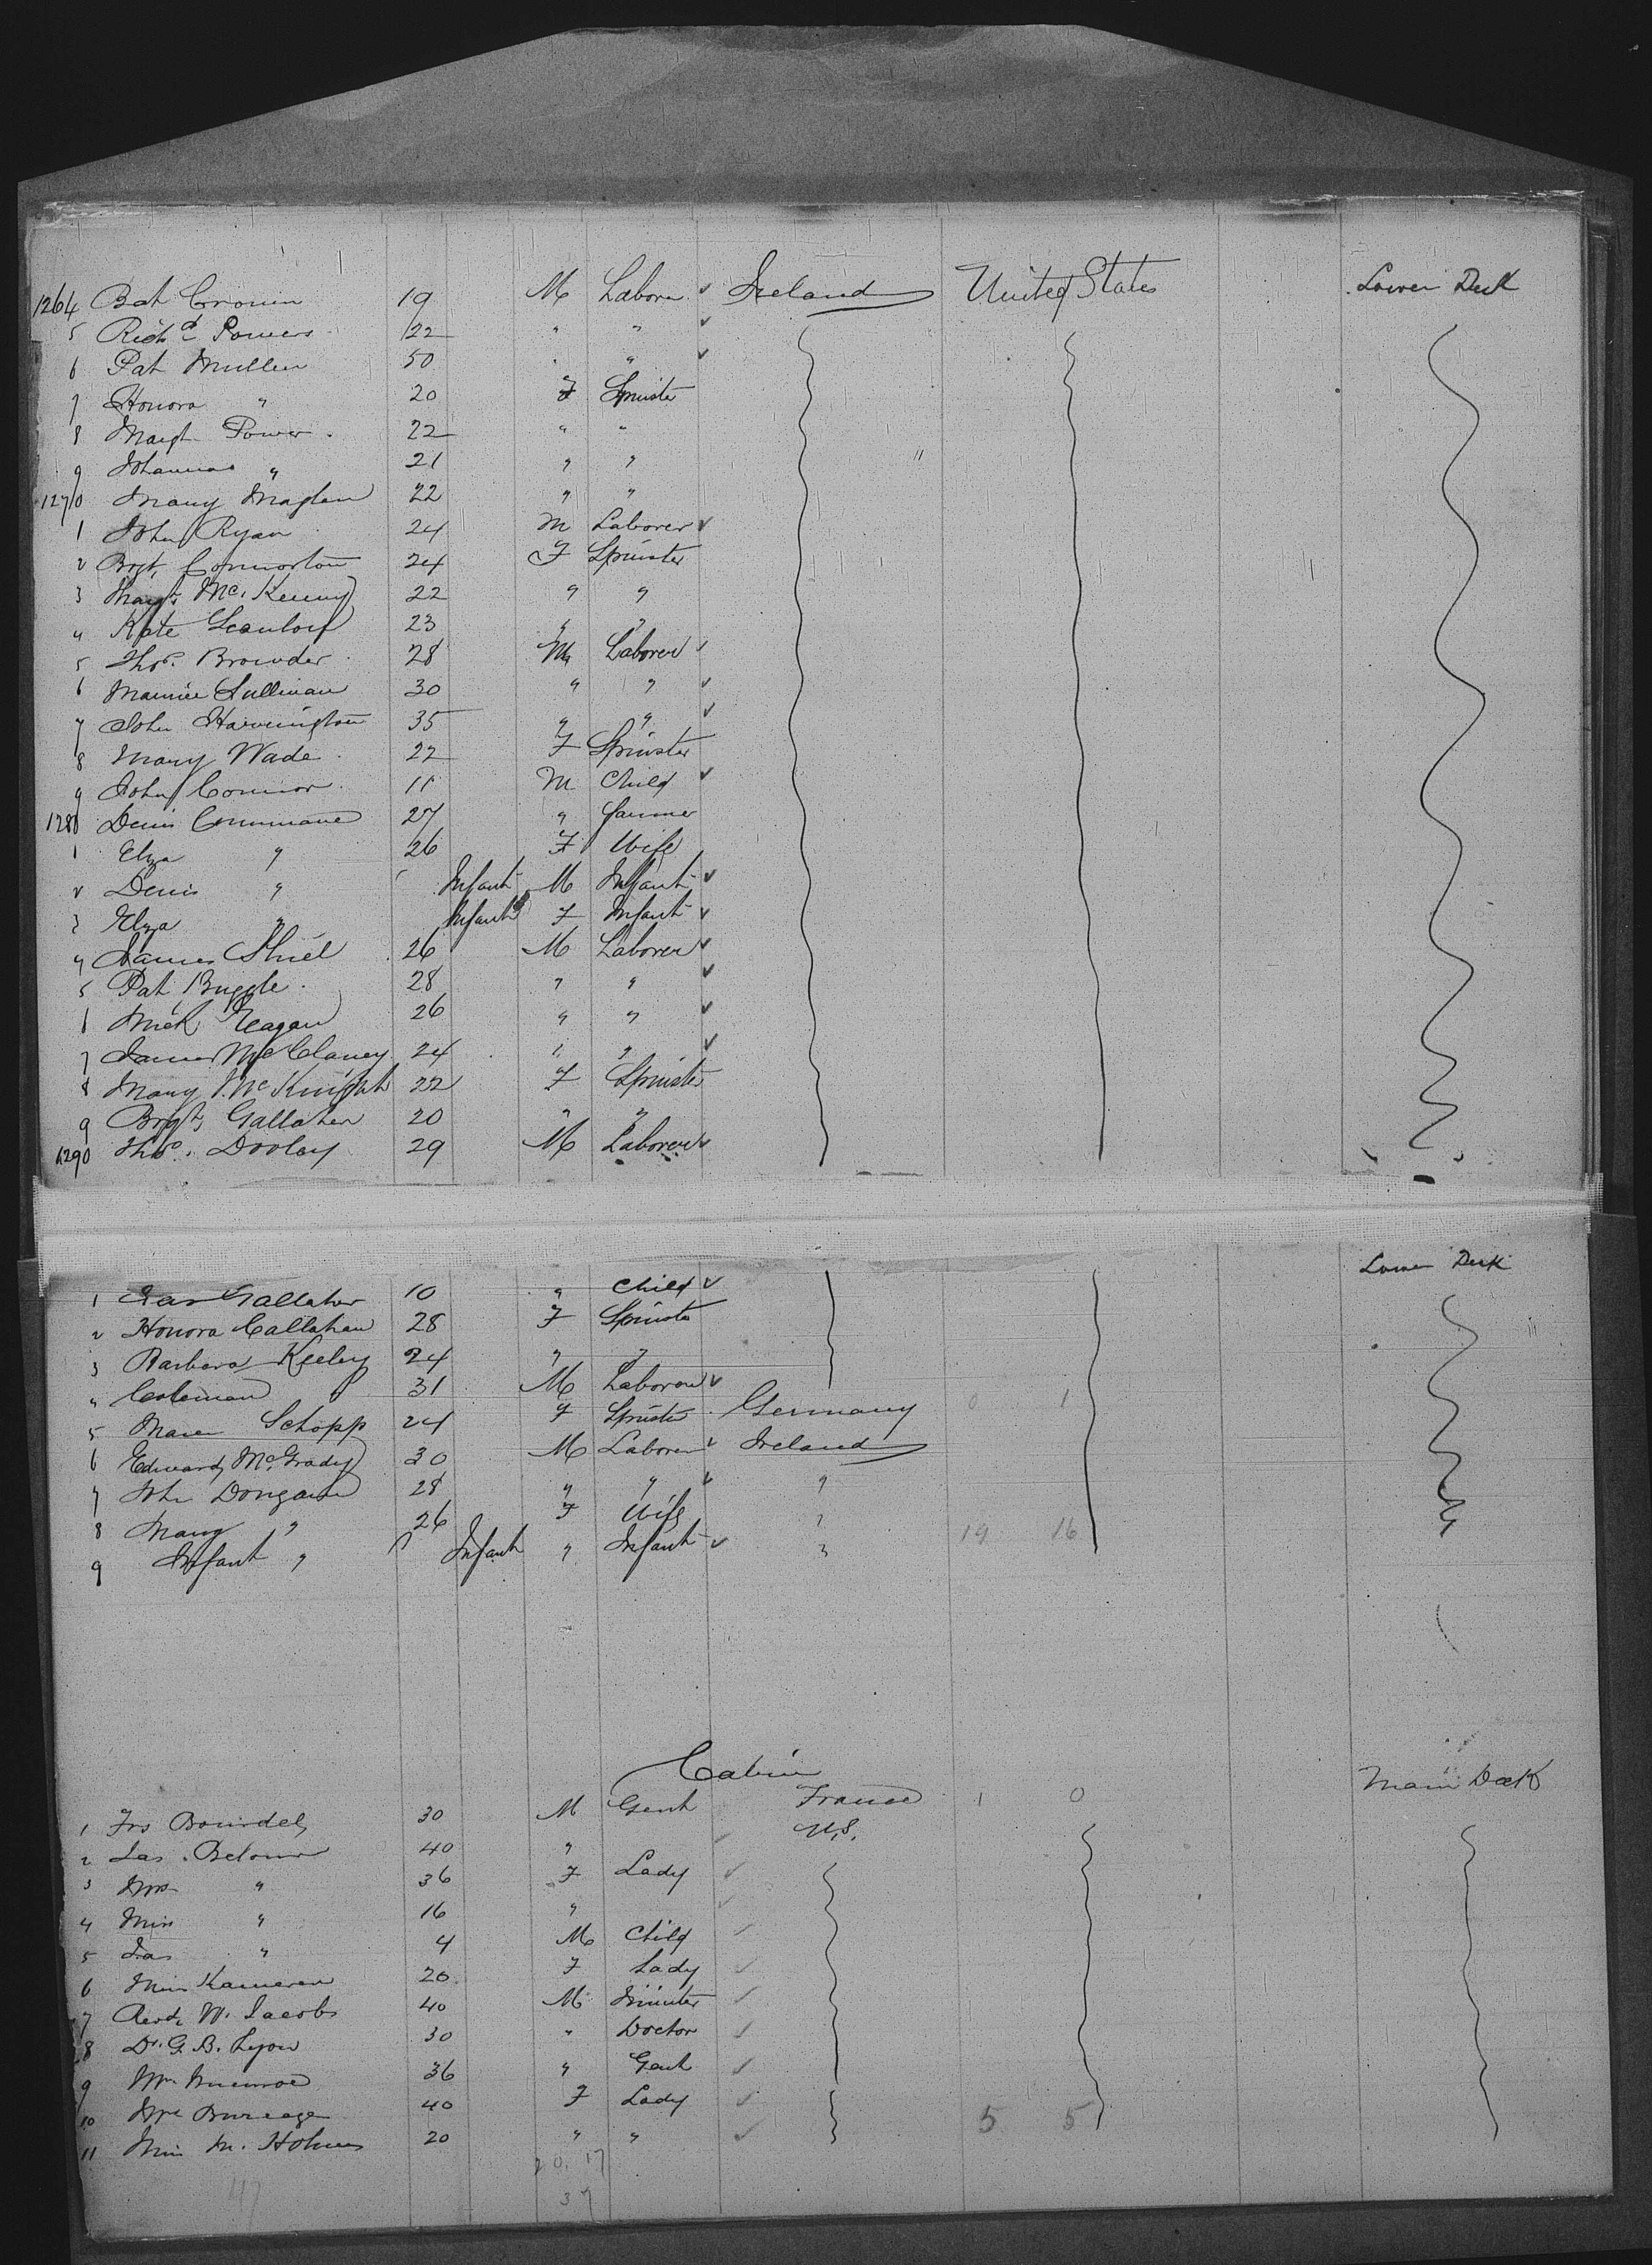 1264 Bat Cronin 19 M Labora ✓ Ireland United States Lower Deck
5 Richd Powers 22 " " ✓
6 Pat Mullen 50 " " ✓
7 Honora " 20 F Spinster
8 Margt Power 22 " "
9 Johanna " 21 " "
1270 Mary 22 " "
1 John Ryan 24 M Laborer ✓
2 Brgt Connorton 24 F Spinster
3 Margt McKenny 22 " "
4 Kate Scanlon 23 " "
5 Thos. Browder 28 M Laborer ✓
6 Maurice Sullivan 30 " " ✓
7 John Harrington 35 " " ✓
8 Mary Wade 22 F Spinster
9 John Connor 11 M Child ✓
1280 Denis Cummane 27 " Farmer
1 Elza " 26 F Wife
2 Denis " Infant M Infant ✓
3 Elza " Infant F Infant ✓
4 James Shiel 26 M Laborer ✓
5 Pat Buggle 28 " " ✓
6 Mick Reagan 26 " " ✓
7 James McClaney 24 " " ✓
8 Mary McKnight 22 F Spinster
9 Brgt Gallaher 20 " "
1290 Thos. Dooley 29 M Laborer ✓
Lower Deck
1 Jas Gallaher 10 " Child ✓
2 Honora Callahan 28 F Spinster
3 Barbara Keeley 24 " "
4 Coleman " 31 M Laborer ✓
5 Maren Schopp 24 F Spinster Germany 0 1
6 Edward McGrady 30 M Laborer ✓ Ireland
7 John Dongan 28 " " ✓ "
8 Mary " 26 F Wife " 19 16
9 Infant " Infant " Infant ✓ "
Cabin
1 Frs Bourdel 30 M Gent France 1 0 Main Deck
2 Jas. 40 " U.S.
3 Mrs " 36 F Lady ✓
4 Miss " 16 " ✓
5 Jas " 4 M Child ✓
6 Miss Kameren 20 F Lady ✓
7 Revd. W. Jacobs 40 M Minister ✓
8 Dr. G. B. Lyon 30 " Doctor ✓
9 Wm Munroe 36 " Gent ✓
10 40 F Lady ✓ 5 5
11 Miss M. Holmes 20 " " ✓
20. 17
47 37